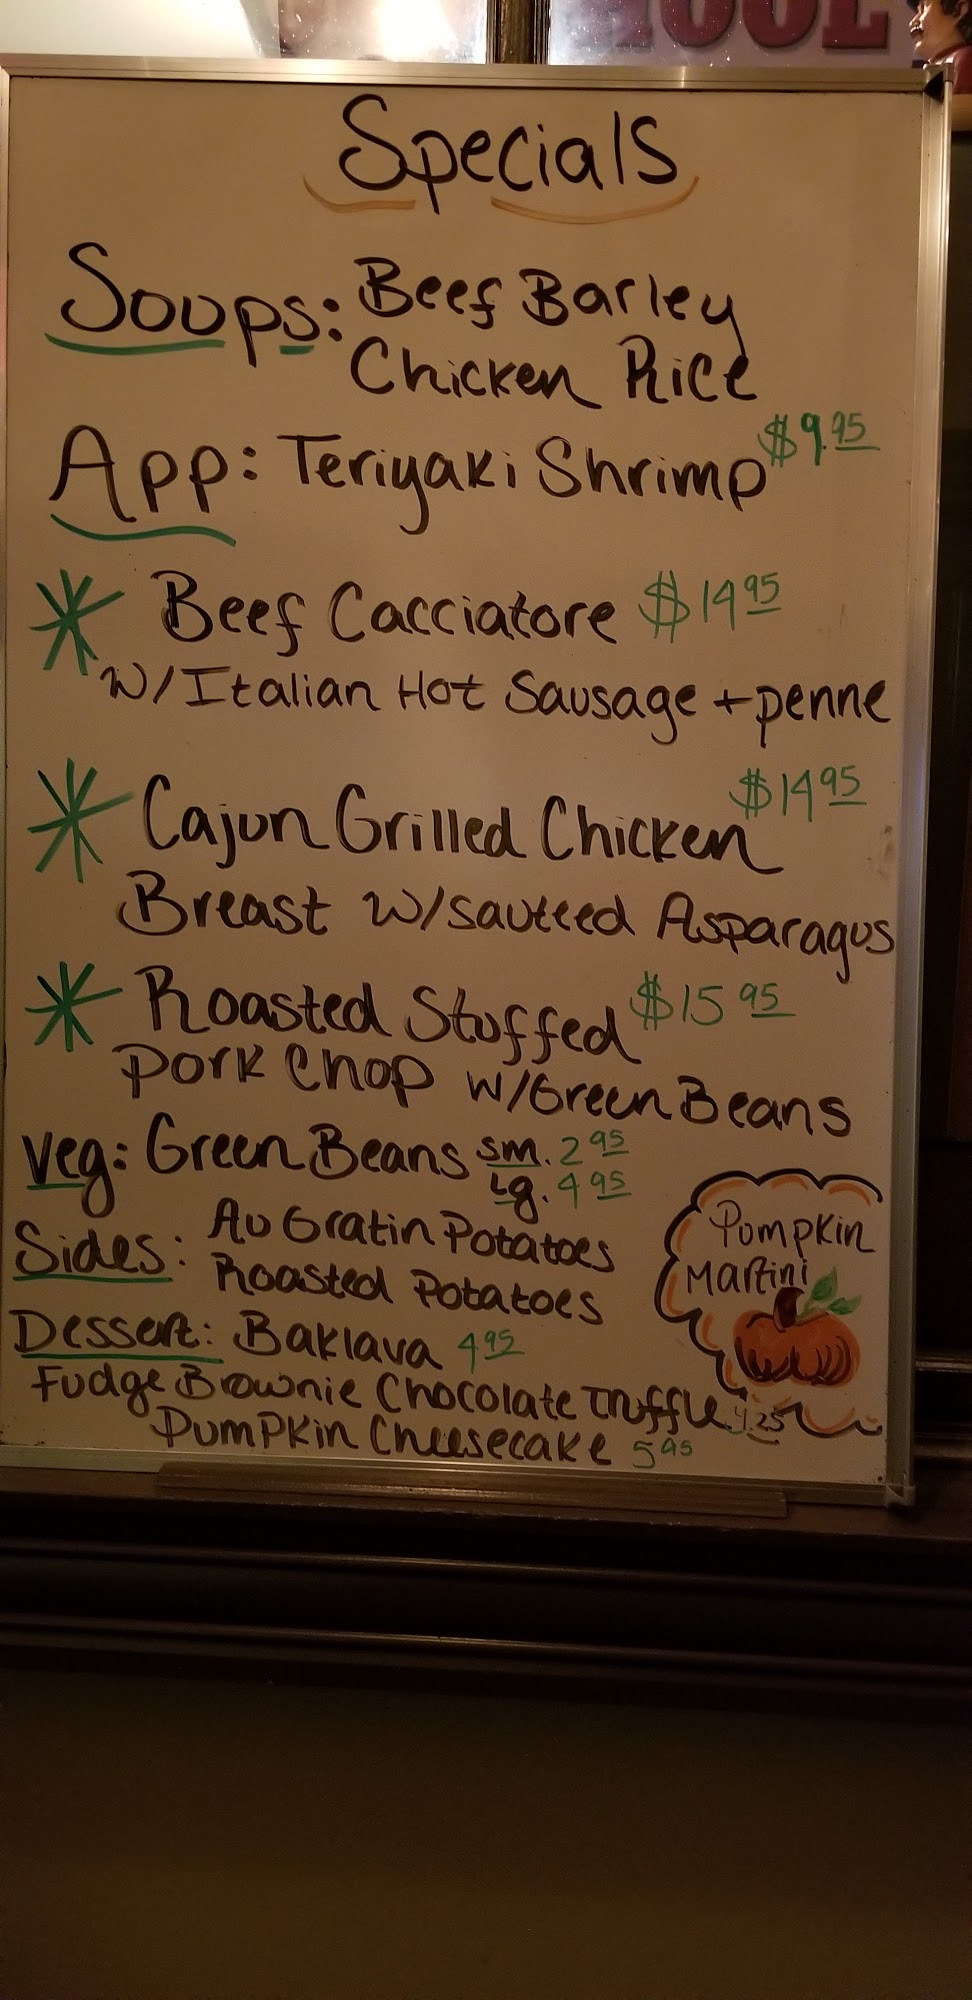 Specials
Soups: Beef Barley
Chicken Rice
App: Teriyaki Shrimp $9.95
Beef Cacciatore $14 95
W/Italian Hot Sausage + penne
Cajun Grilled Chicken $14 95
Breast w/sauteed Asparagus
Roasted Stuffed $15 95
Pork Chop w/Green Beans
Veg: Green Beans sm. 2 95
Lg. 4 95
Sides: Au Gratin Potatoes
Roasted Potatoes
Pumpkin
Martini
Dessert: Baklava 4 95
Fudge Brownie Chocolate Truffle 4.25
Pumpkin Cheesecake 5 95